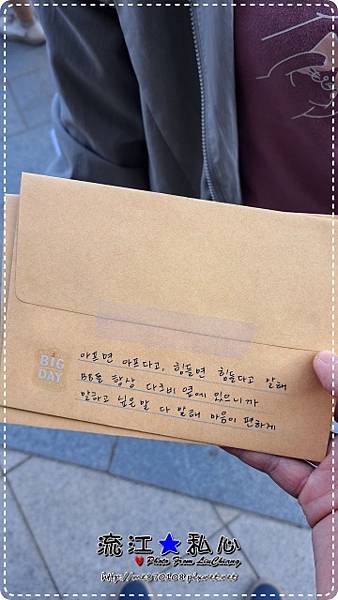 BIG
DAY
아프면 아프다고, 힘들면 힘들다고 말해
BB들 항상 다로비 옆에 있으니까
말하고 싶은 말 다 말해 마음이 편하게
流江★私心
Photo From LiuChiang
http://me870108.pixnet.net